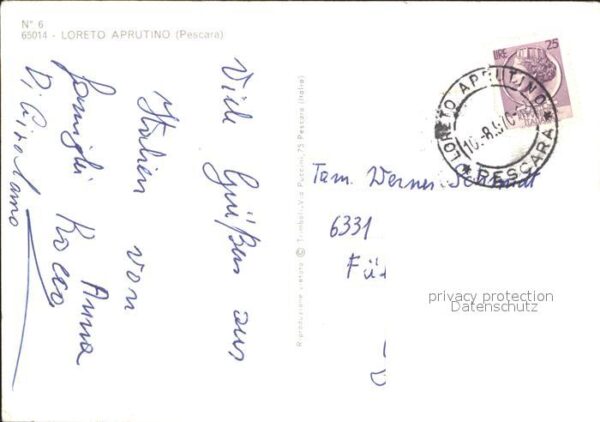 N° 6
65014 - LORETO APRUTINO (Pescara)
Viele Grüßen aus
Italien von
famiglia Anna
Rocco
Di Girolamo
Riproduzione vietata © Trimboli - Via Puccini, 75 Pescara (Italia)
LIRE 25
LORETO APRUTINO
10.-8.70.-
* PESCARA *
Fam. Werner Schmidt
6331
privacy protection
Datenschutz